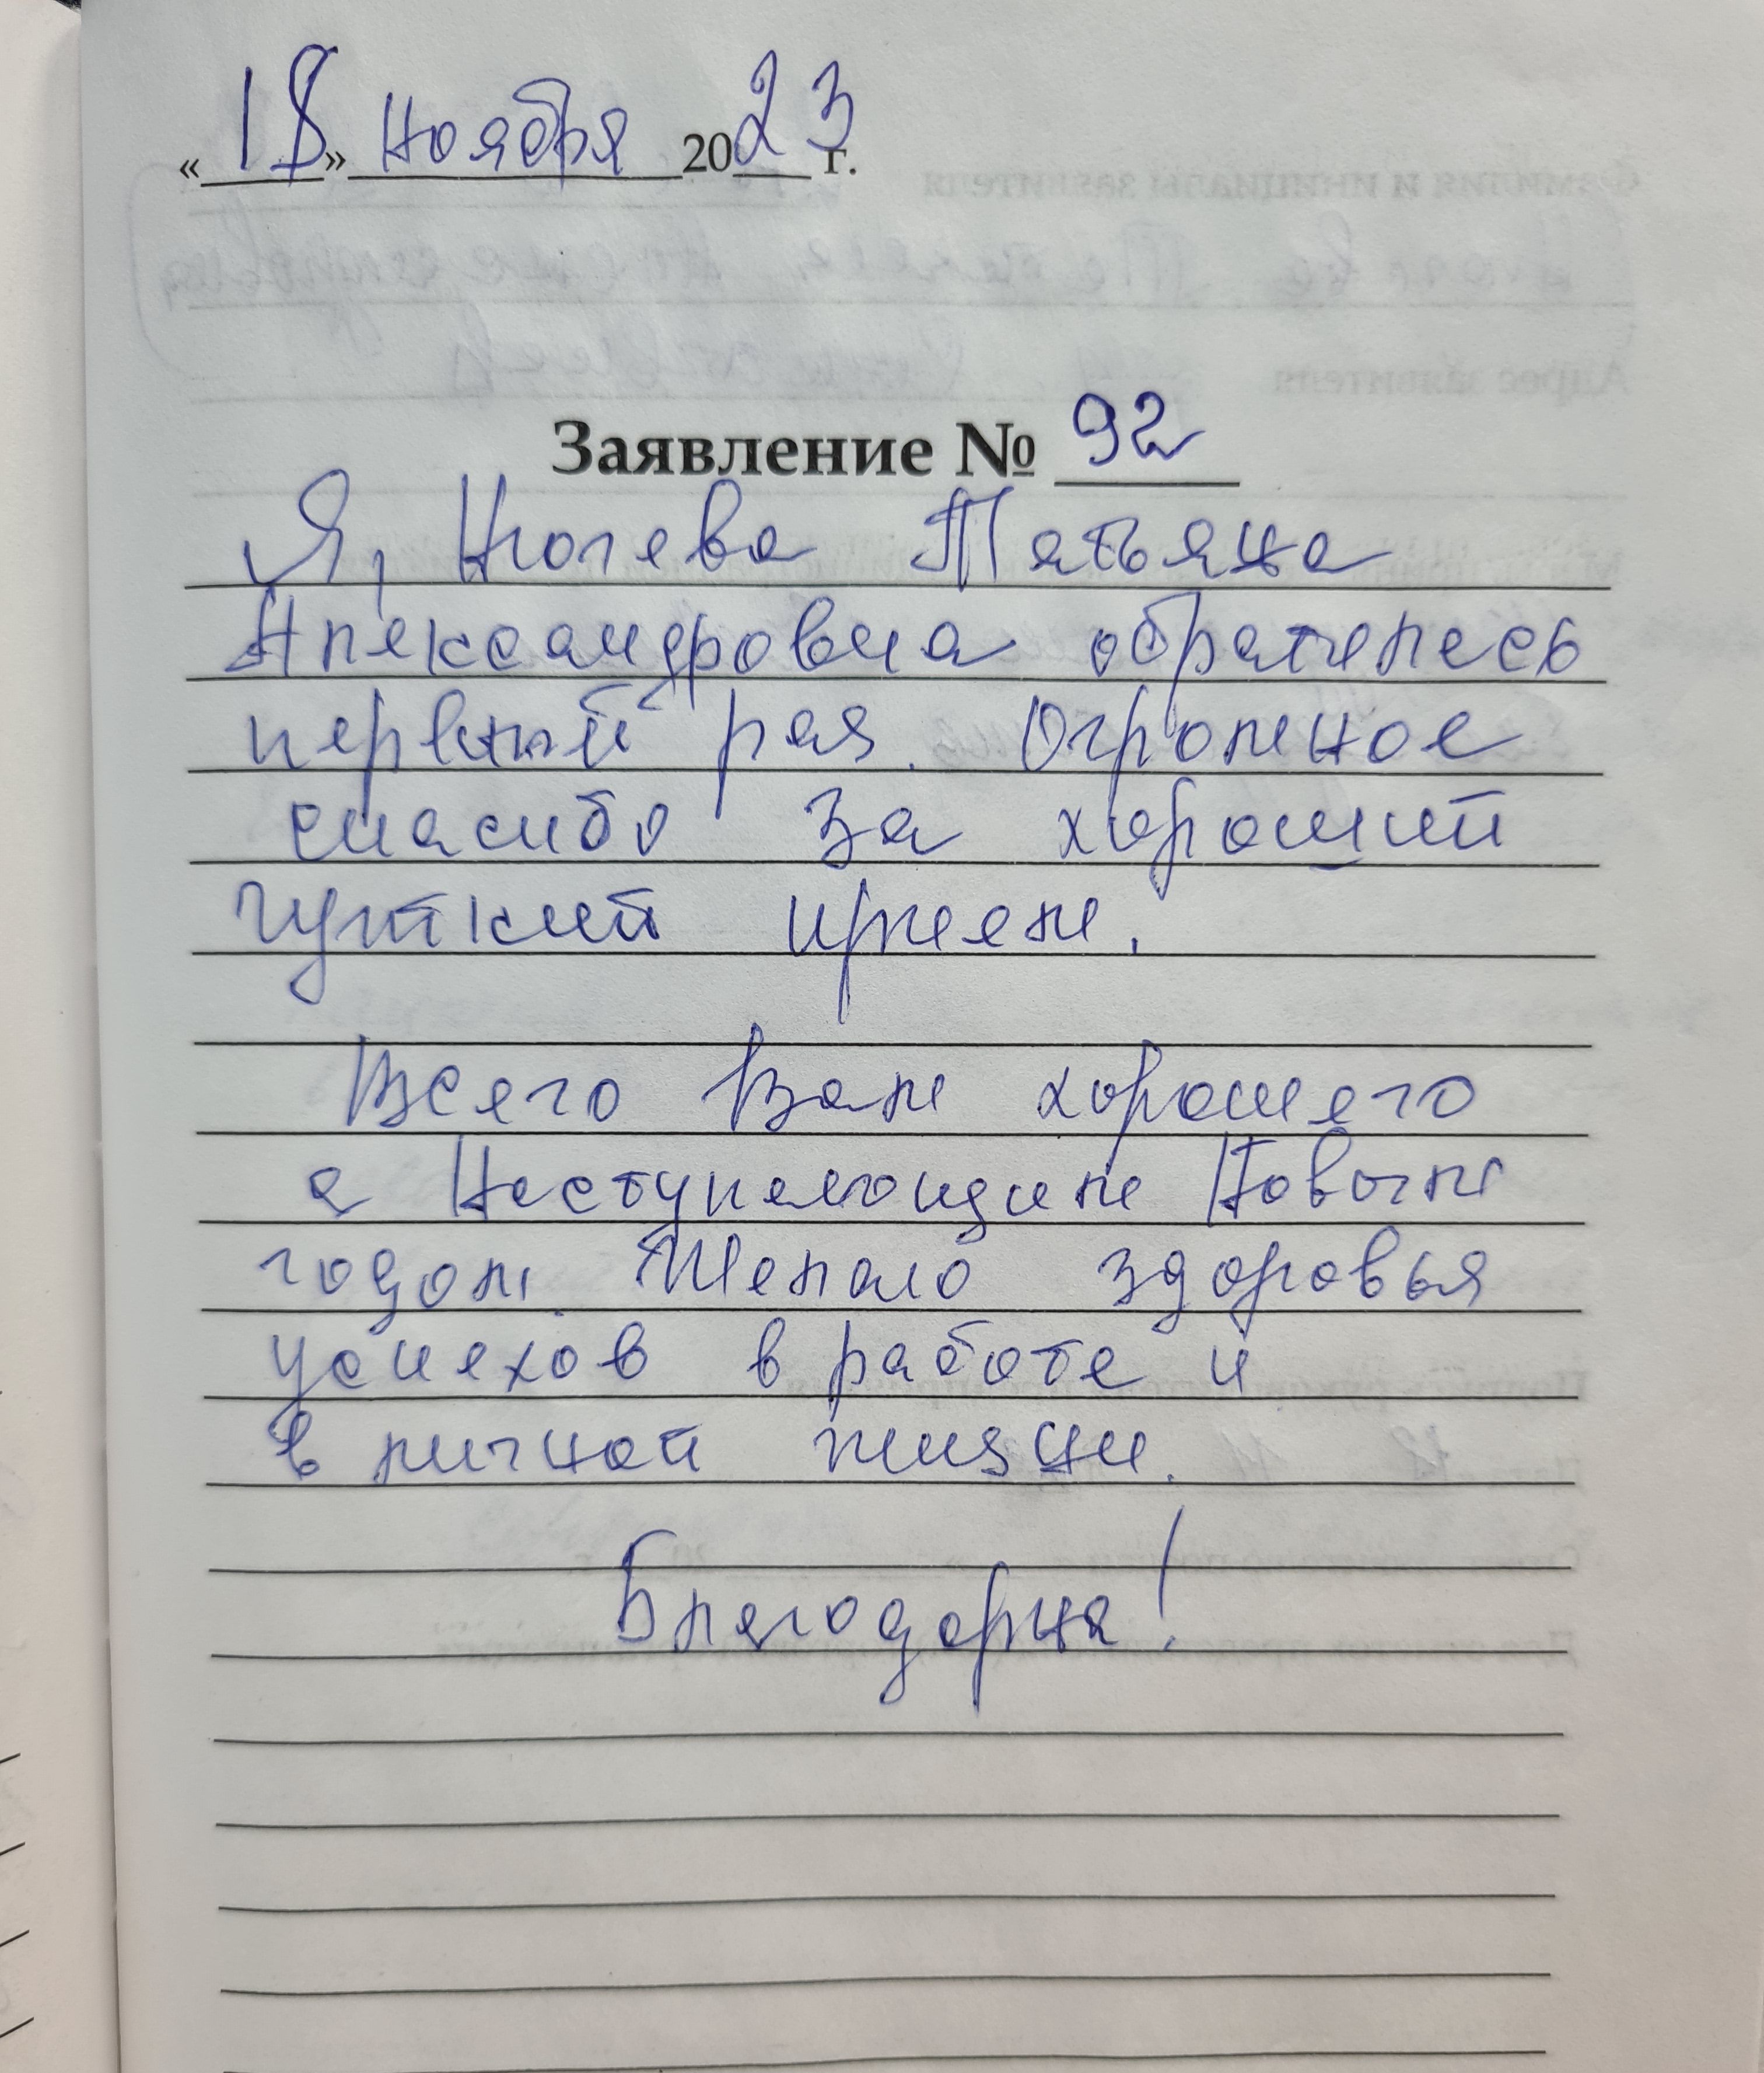 «18» ноября 2023 г.
Заявление № 92
Я, Татьяна
Александровна обратилась
первый раз. Огромное
спасибо за хороший
чуткий прием.
Всего Вам хорошего
с Наступающим Новым
годом. Желаю здоровья
успехов в работе и
в личной жизни.
Благодарна!